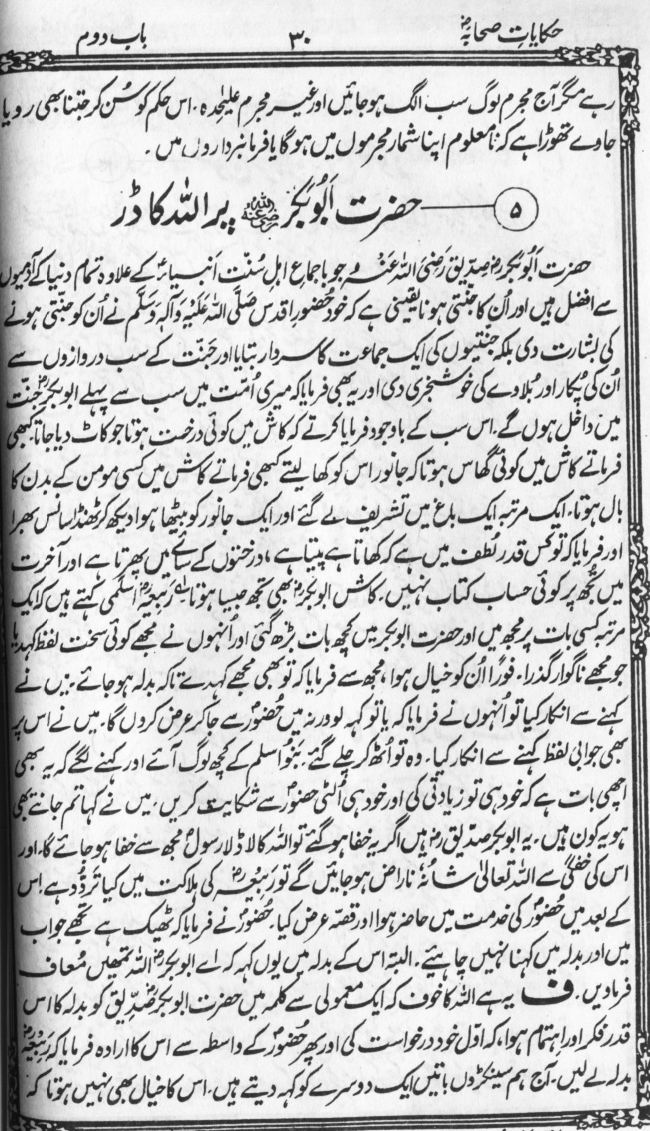 حکایاتِ صحابہؓ ۳۰ باب دوم
رہے مگر آج مجرم لوگ سب الگ ہو جائیں اور غیر مجرم علیحدہ۔ اس حکم کو سُن کر جتنا بھی رویا
جاوے تھوڑا ہے کہ نامعلوم اپنا شمار مجرموں میں ہوگا یا فرمانبرداروں میں۔
۵ حضرت اَبُوبَکر رضی اللہ عنہ پر اللہ کا ڈر
حضرت اَبُوبکرؓ صدِّیق رَضِیَ اللہُ عَنہُ جو باجماعِ اہلِ سُنّت اَنبیاءؑ کے علاوہ تمام دنیا کے آدمیوں
سے افضل ہیں اور اُن کا جنّتی ہونا یقینی ہے کہ خود حُضورِ اقدس صَلَّی اللہُ عَلَیْہِ وَآلِہٖ وَسَلَّم نے اُن کو جنّتی ہونے
کی بشارت دی بلکہ جنّتیوں کی ایک جماعت کا سردار بتایا اور جَنّت کے سب دروازوں سے
اُن کی پُکار اور بُلاوے کی خوشخبری دی اور یہ بھی فرمایا کہ میری اُمّت میں سب سے پہلے ابوبکرؓ جنّت
میں داخل ہوں گے۔ اس سب کے باوجود فرمایا کرتے کہ کاش میں کوئی درخت ہوتا جو کاٹ دیا جاتا۔ کبھی
فرماتے کاش میں کوئی گھاس ہوتا کہ جانور اس کو کھا لیتے کبھی فرماتے کاش میں کسی مومن کے بدن کا
بال ہوتا۔ ایک مرتبہ ایک باغ میں تشریف لے گئے اور ایک جانور کو بیٹھا ہوا دیکھ کر ٹھنڈا سانس بھرا
اور فرمایا کہ تو کس قدر لُطف میں ہے کہ کھاتا ہے پیتا ہے، درختوں کے سائے میں پھرتا ہے اور آخرت
میں تُجھ پر کوئی حساب کتاب نہیں۔ کاش ابوبکرؓ بھی تجھ جیسا ہوتا۔ رَبیعہؓ اسلمی کہتے ہیں کہ ایک
مرتبہ کسی بات پر مجھ میں اور حضرت ابوبکر میں کچھ بات بڑھ گئی اور اُنہوں نے مجھے کوئی سخت لفظ کہہ دیا
جو مجھے ناگوار گذرا۔ فورًا اُن کو خیال ہوا، مجھ سے فرمایا کہ تو بھی مجھے کہدے تاکہ بدلہ ہو جائے۔ میں نے
کہنے سے انکار کیا تو اُنہوں نے فرمایا کہ یا تو کہہ لو ورنہ میں حُضورؐ سے جا کر عرض کروں گا۔ میں نے اس پر
بھی جوابی لفظ کہنے سے انکار کیا۔ وہ تو اُٹھ کر چلے گئے۔ بَنُو اسلم کے کچھ لوگ آئے اور کہنے لگے کہ یہ بھی
اچھی بات ہے کہ خود ہی تو زیادتی کی اور خود ہی اُلٹی حضورؐ سے شکایت کریں۔ میں نے کہا تم جانتے بھی
ہو یہ کون ہیں۔ یہ ابوبکر صدّیقؓ ہیں اگر یہ خفا ہو گئے تو اللہ کا لاڈلا رسولؐ مجھ سے خفا ہو جائے گا اور
اس کی خفگی سے اللہ تعالیٰ شانُہٗ ناراض ہو جائیں گے تو ربیعہؓ کی ہلاکت میں کیا تَردُّد ہے اس
کے بعد میں حُضورؐ کی خدمت میں حاضر ہوا اور قصّہ عرض کیا۔ حُضورؐ نے فرمایا کہ ٹھیک ہے تجھے جواب
میں اور بدلہ میں کہنا نہیں چاہئیے۔ البتہ اس کے بدلہ میں یوں کہہ کہ اے ابوبکرؓ اللہ تمھیں مُعاف
فرماویں۔ ف یہ ہے اللہ کا خوف کہ ایک معمولی سے کلمہ میں حضرت ابوبکر صدِّیقؓ کو بدلہ کا اس
قدر فکر اور اہتمام ہوا، کہ اوّل خود درخواست کی اور پھر حُضورؐ کے واسطہ سے اس کا ارادہ فرمایا کہ ربیعہؓ
بدلہ لے لیں۔ آج ہم سینکڑوں باتیں ایک دوسرے کو کہہ دیتے ہیں۔ اس کا خیال بھی نہیں ہوتا کہ